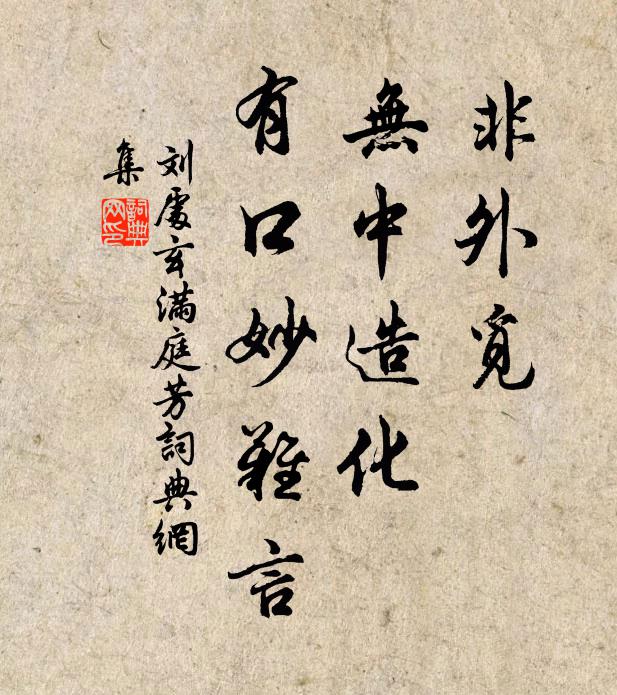 非外覓
無中造化
有口妙難言
刘處玄满庭芳詞典網
集
詞典
网印